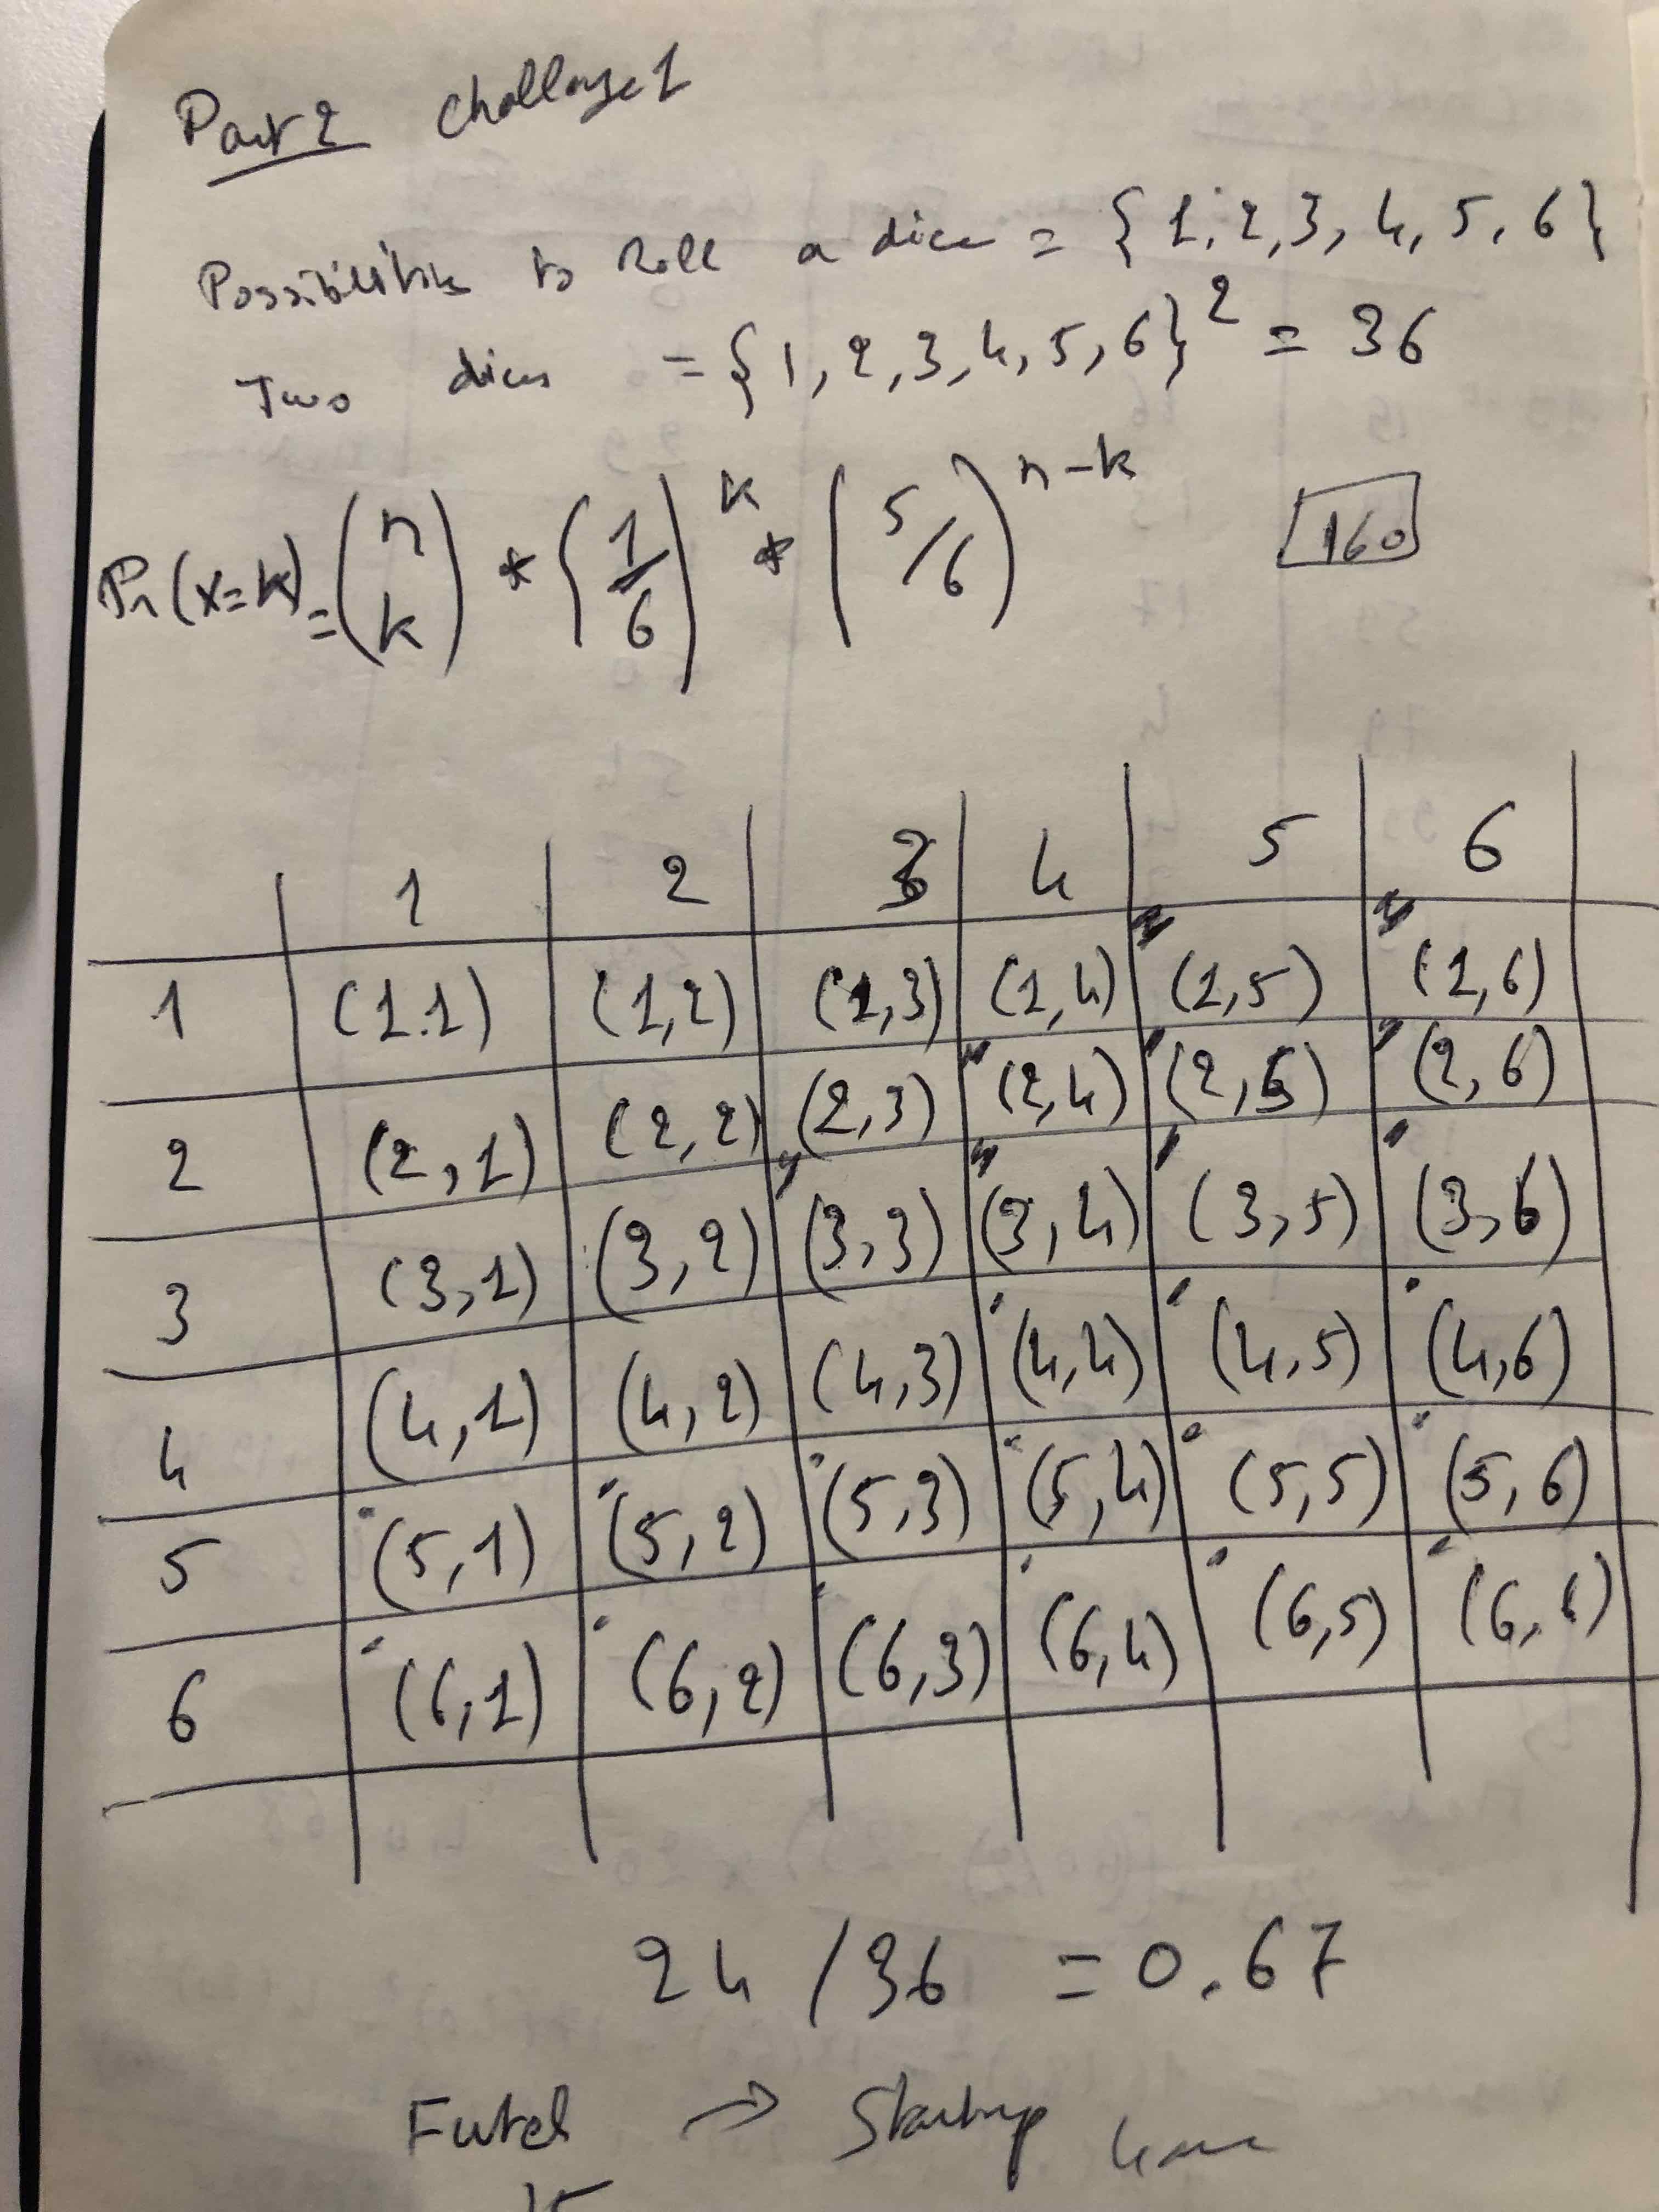 Part 2 Challenge 1
Possibilities to roll a dice = {1, 2, 3, 4, 5, 6}
Two dices = {1, 2, 3, 4, 5, 6}² = 36
Pr(x=k) = (n k) * (1/6)^k * (5/6)^n-k
160
1 2 3 4 5 6
1 (1.1) (1,2) (1,3) (1,4) (1,5) (1,6)
2 (2,1) (2,2) (2,3) (2,4) (2,5) (2,6)
3 (3,1) (3,2) (3,3) (3,4) (3,5) (3,6)
4 (4,1) (4,2) (4,3) (4,4) (4,5) (4,6)
5 (5,1) (5,2) (5,3) (5,4) (5,5) (5,6)
6 (6,1) (6,2) (6,3) (6,4) (6,5) (6,6)
24 / 36 = 0.67
→ Startup
15